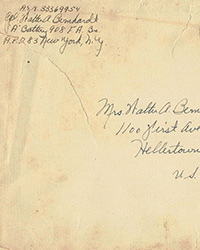 A.S.N. 33369954
Cpl. Walter A Bernhardt
"A" Battery 908 F.A. Bn
A.P.O. 83 New York, N.Y
Mrs. Walter A Bern
1100 First Ave
Hellertown
U.S.